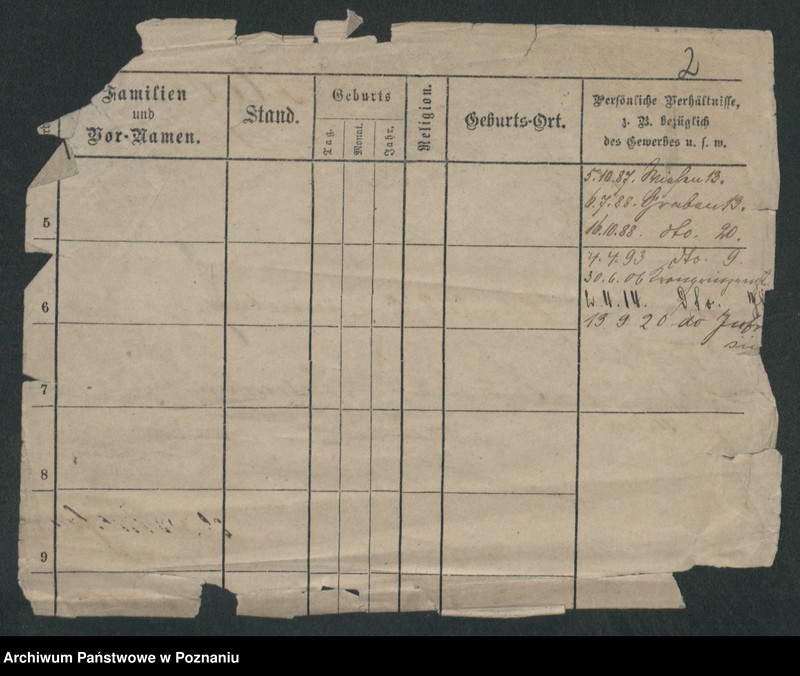 2
Familien
und
Vor-Namen.
Stand.
Geburts
Tag.
Monat.
Jahr.
Religion.
Geburts-Ort.
Persönliche Verhältnisse,
z. B. bezüglich
des Gewerbes u. s. w.
5
5.10.87. Wiesen 13.
6.7.88. Graben 13.
16.10.88. dto. 20.
6
4.4.93 dto. 9.
30.6.06
14.
13 9 20 do
7
8
9
Archiwum Państwowe w Poznaniu